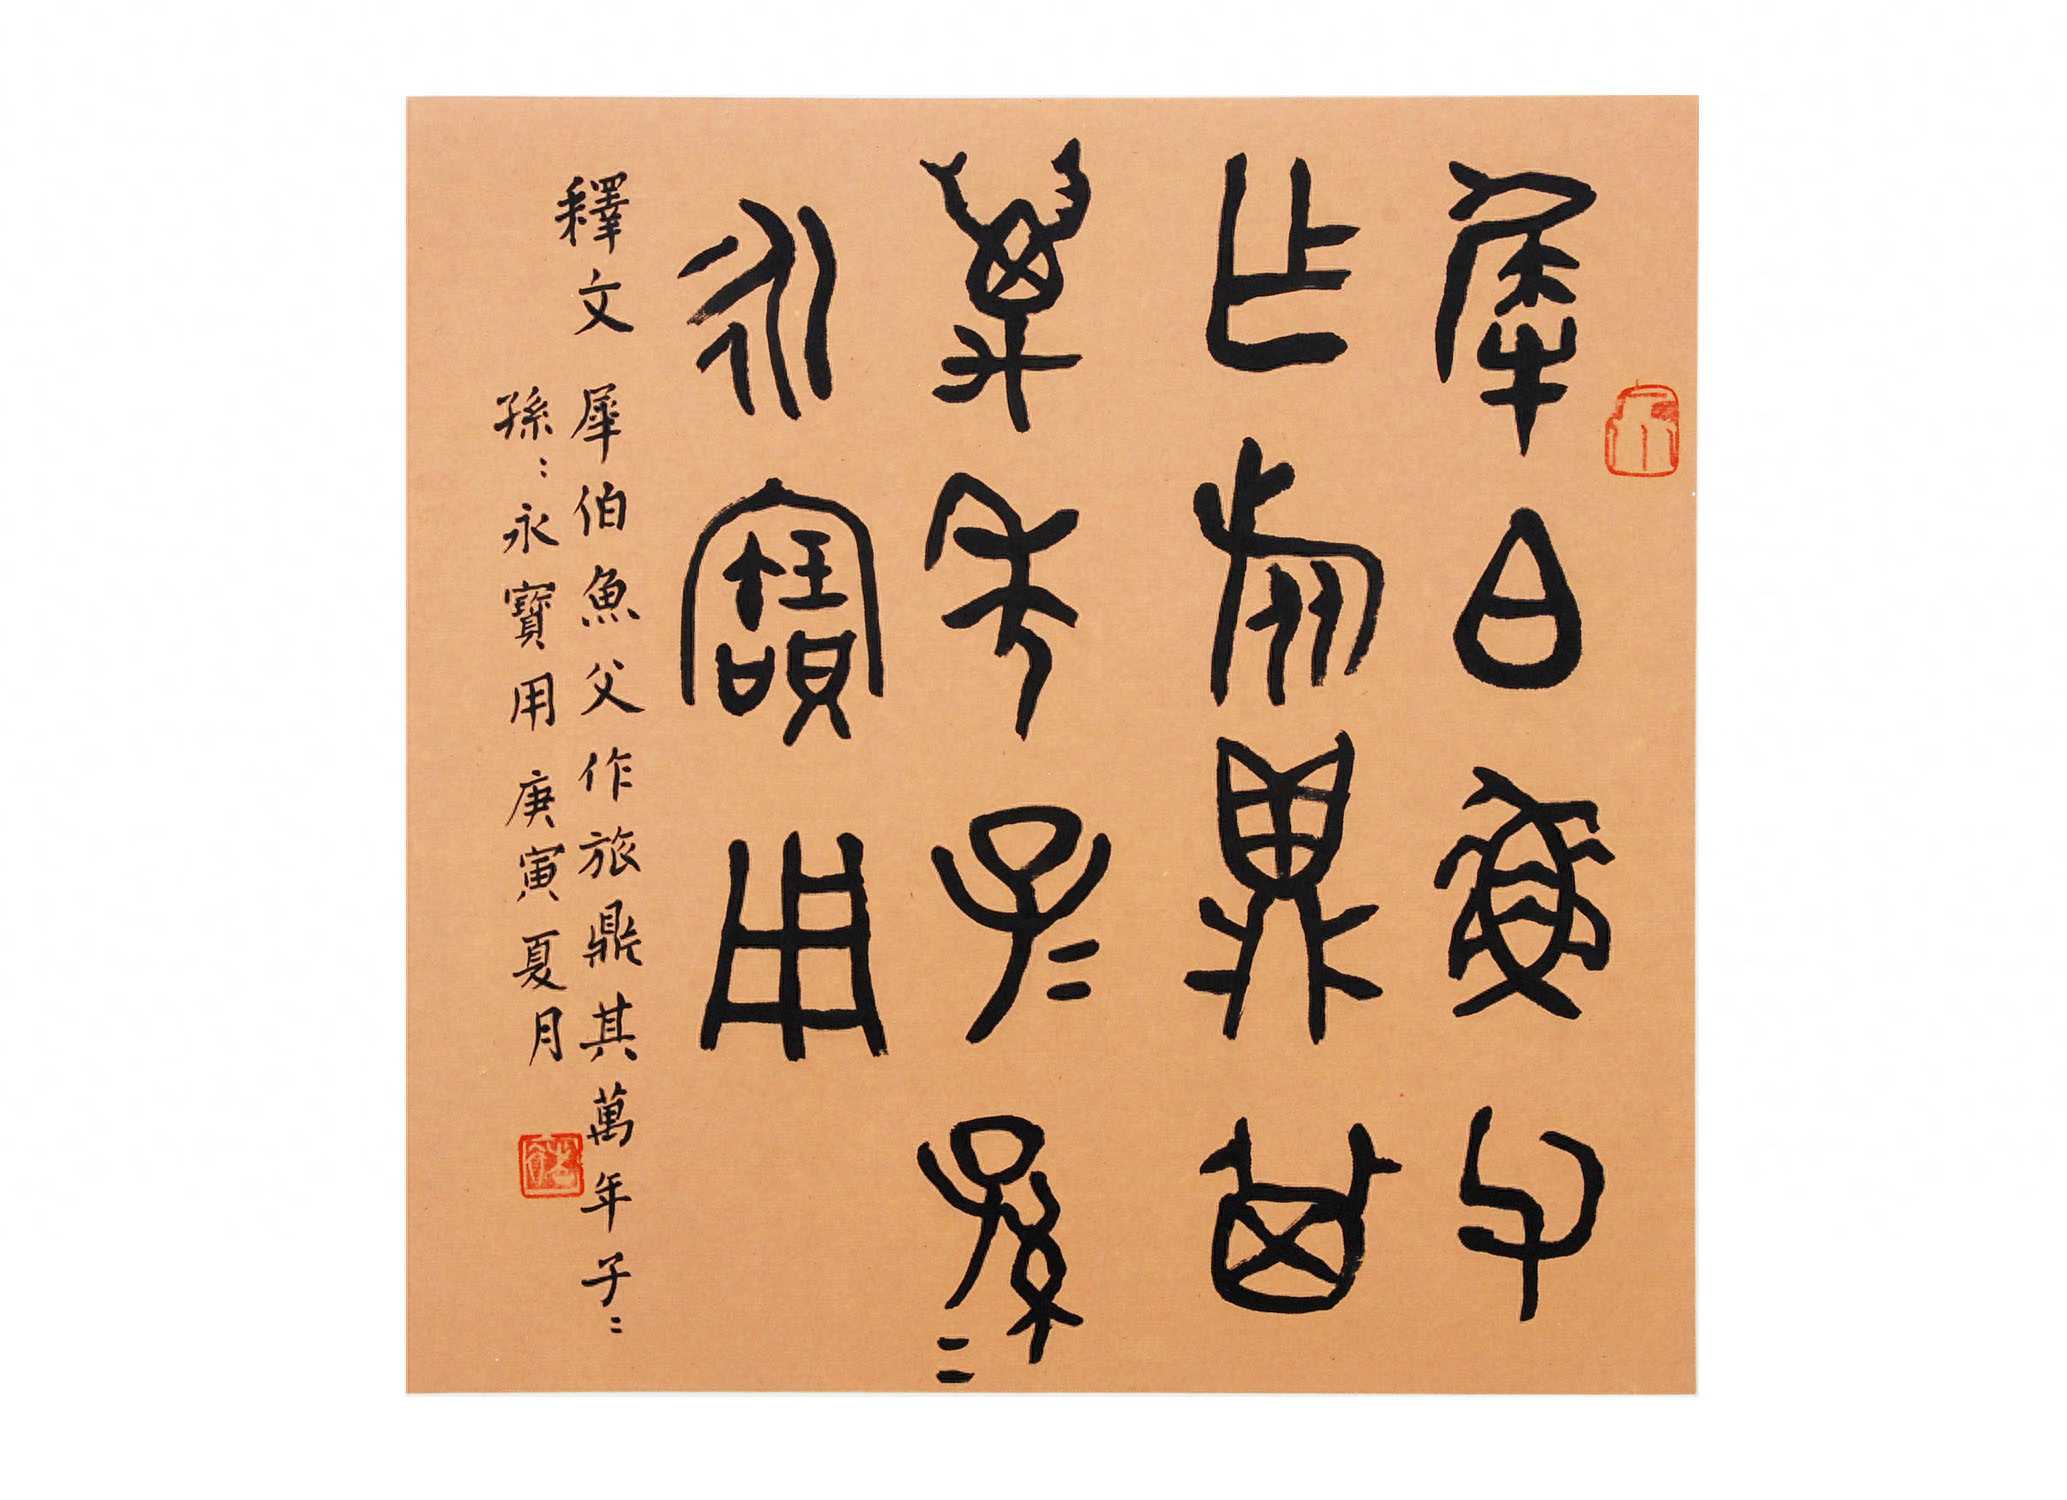 犀白魚父
乍旅鼎其
萬年子=孫=
永寶用
釋文 犀伯魚父作旅鼎其萬年子:
孫:永寶用 庚寅夏月